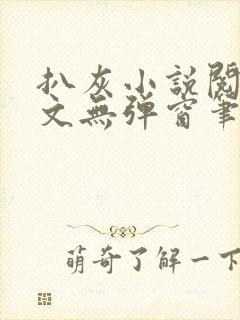 扒灰小説閱
文無弹窗筆
萌奇了解一下